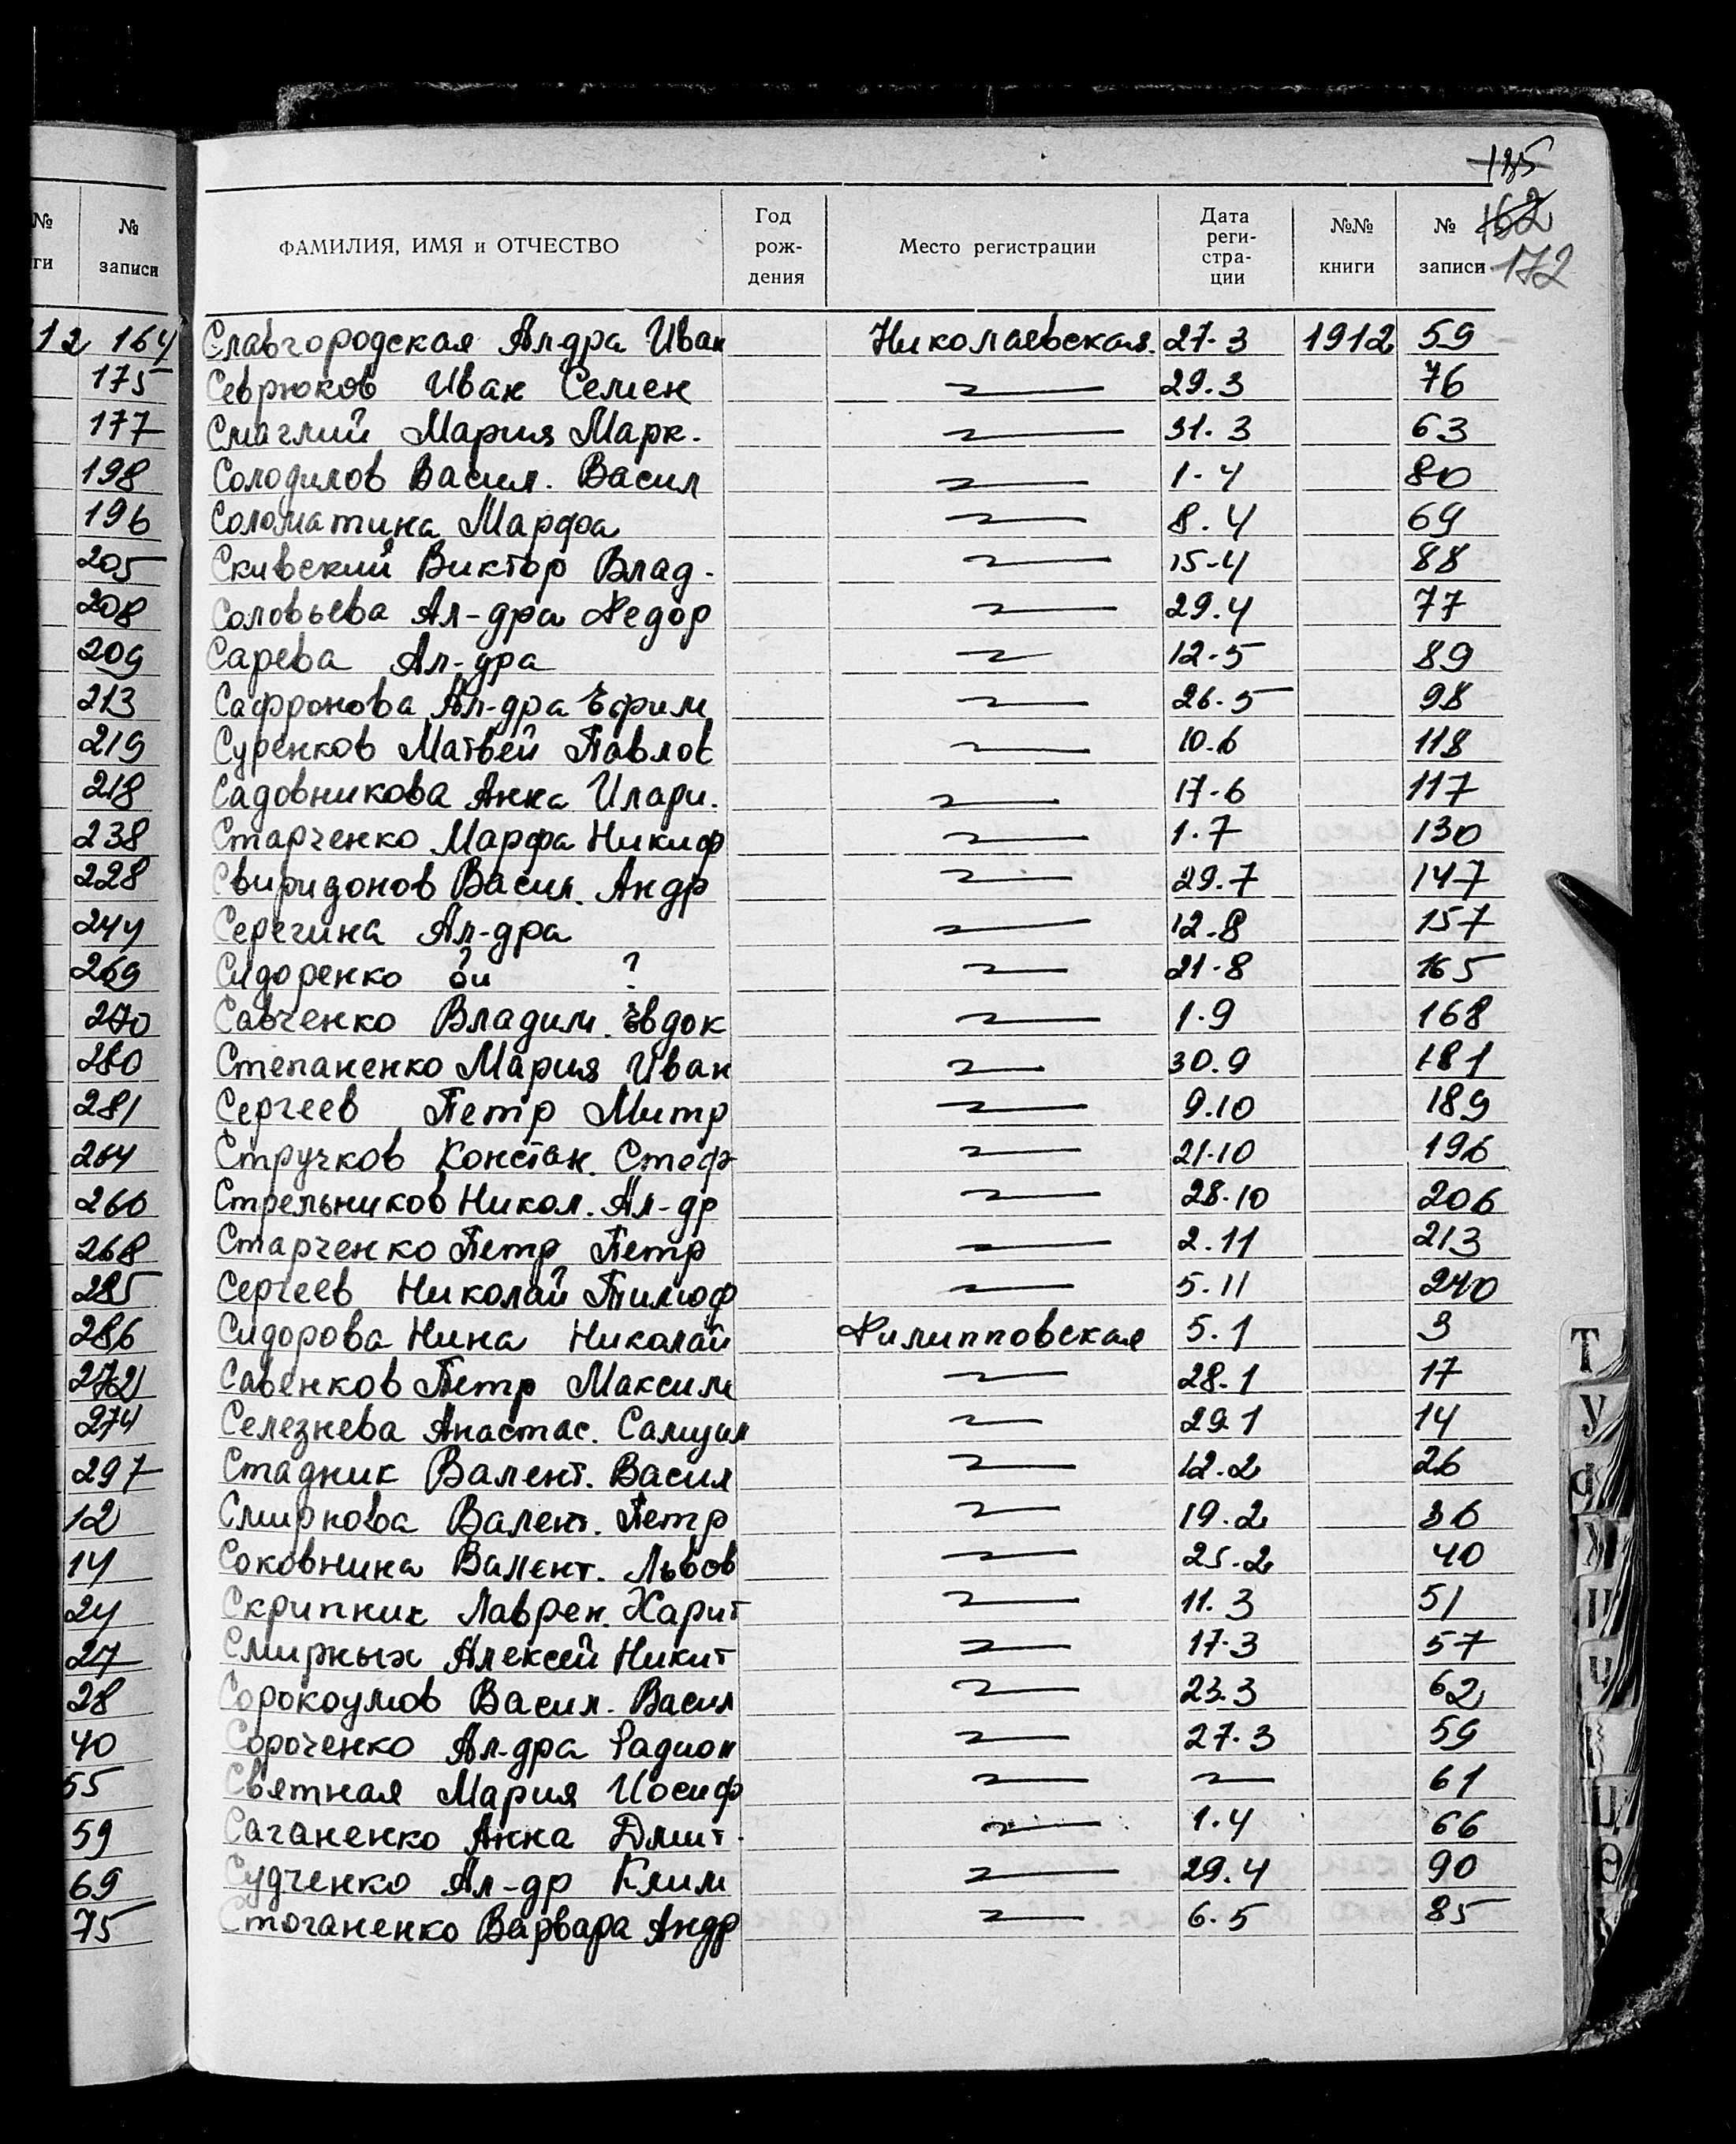 185
162
172
№ № ФАМИЛИЯ, ИМЯ и ОТЧЕСТВО Год рож- дения Место регистрации Дата реги- стра- ции №№ книги № записи
ги записи
12 164 Славгородская Ал-дра Иван Николаевская. 27.3 1912 59
175 Севрюков Иван Семен 29.3 76
177 Смаглий Мария Марк. 31.3 63
198 Солодилов Васил. Васил 1.4 80
196 Соломатина Марфа 8.4 69
205 Скивский Виктор Влад. 15-4 88
208 Соловьева Ал-дра Федор 29.4 77
209 Сарева Ал-дра 12.5 89
213 Сафронова Ал-дра Ефим 26.5 98
219 Суренков Матвей Павлов 10.6 118
218 Садовникова Анна Илари. 17.6 117
238 Старченко Марфа Никиф 1.7 130
228 Свиридонов Васил. Андр 29.7 147
244 Серегина Ал-дра 12.8 157
269 Сидоренко ? ? 21.8 165
270 Савченко Владим. Евдок 1.9 168
280 Степаненко Мария Иван 30.9 181
281 Сергеев Петр Митр 9.10 189
264 Стручков Констан. Стеф 21.10 196
260 Стрельников Никол. Ал-др 28.10 206
268 Старченко Петр Петр 2.11 213
285 Сергеев Николай 5.11 240
286 Сидорова Нина Николай Филипповская 5.1 3
272 Савенков Петр Максим 28.1 17
274 Селезнева Анастас. Самуил 29.1 14
297 Стадник Валент. Васил 12.2 26
12 Смирнова Валент. Петр 19.2 36
14 Соковнина Валент. Львов 25.2 40
24 Скрипник Лаврен. Харит 11.3 51
27 Смирных Алексей Никит 17.3 57
28 Сорокоумов Васил. Васил 23.3 62
40 Сороченко Ал-дра Радион 27.3 59
55 Святная Мария Иосиф 61
59 Саганенко Анна Дмит. 1.4 66
69 Судченко Ал-др Клим 29.4 90
75 Стоганенко Варвара Андр 6.5 85
Т
У